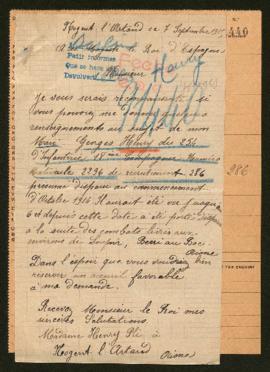 Nogent l'Artaud ce 7 Septembre
440
A Sa Majesté le Roi d'Espagne
Pedir informes
Que se han
Devolver
Henry
Monsieur
Je vous serais reconnaissante si
vous pouviez me donner quelques
renseignements au sujet de mon
Mari Georges Henry du 254
d'Infanterie 18me Compagnie Numéro
Matricule 2236 de recrutement 286
présumé disparu au commencement
d'Octobre 1914 Il aurait été vu jusqu'au
6 et depuis cette date a été porté disparu
à la suite des combats livrés aux
environs de Soupir, Berri au Bac.
Aisne
286
Dans l'espoir que vous voudrez bien
réserver un accueil favorable
à ma demande.
Recevez Monsieur le Roi mes
sincères Salutations.
Madame Henry
à
Nogent l'Artaud
Aisne